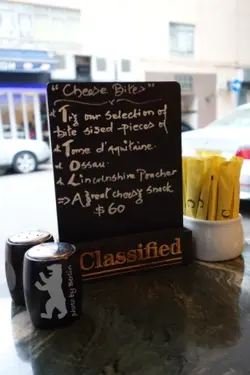 "Cheese Bites"
* Try our selection of
bite sized pieces of
* Tome d'Aquitaine.
* Ossau.
* Lincolnshire Poacher
=> A great cheesy snack
$60
Classified
Photo by Berlin